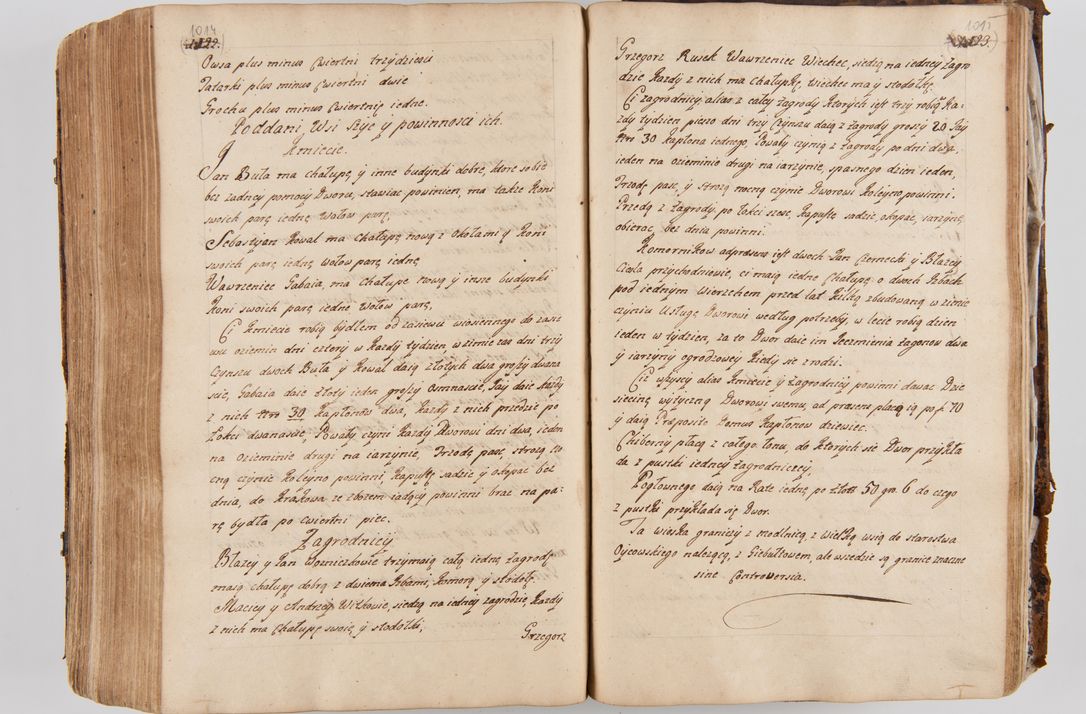 1014
Owsa plus minus Cwiertni trzydziesci
Tatarki plus minus Cwiertni dwie
Grochu plus minus Cwiertnię iedne.
Poddani Wsi Szyc y powinnosci ich.
Kmiecie.
Jan Buła ma chałupę y inne budynki dobre, ktore sobie
bez żadney pomocy Dworu, stawiac powinien, ma także Koni
swoich parę iednę wołow parę,
Sebastyan Kowal ma Chałupę nową z Okołami y Koni
swoich parę iednę wołow parę iednę
Wawrzeniec Gabaia, ma Chałupę nową y inne budynki
Koni swoich parę iednę wołow parę,
Ci Kmiecie robią bydłem od zasiewu wiosennego do zasie
wu ozimin dni cztery w każdy tydzien, w zimie zas dni trzy
Czynszu dwoch Buła y Kowal daią złotych dwa groszy dwana
scie, Gabaia daie złoty ieden groszy Osmnascie, Jay daie każdy
z nich Nro 30 Kapłonow dwa, każdy z nich przędzie po
Łokci dwanascie, Powały czyni każdy Dworowi dni dwa, ieden
na oziminie drugi na iarzynie, Trzodę pasc, strozą no
cną czynic koleyno powinni, Kapustę sadzic y okopac bez
dnia, do Krakowa ze zbozem iadący powinni brac na pa-
rę bydła po cwiertni pięc.
Zagrodnicy
Błazey y Jan Wozniczdowie trzymaią całą iednę Zagrodę
maią chałupę dobrą z dwiema Izbami, Komorą y stodołę.
Maciey y Andrzey Witkowie, siedzą na iedney zagrodzie, każdy
z nich ma Chałupę swoię y stodołki,
Grzegorz
1015
Grzegorz Rusek Wawrzeniec Wiechec, siedzą na iedney zagro
dzie każdy z nich ma chałupkę, Wiechec ma y stodołkę.
Ci zagrodnicy alias z całey zagrody ktorych iest trzy robią Ka-
żdy tydzien pieszo dni trzy Czynszu daią z zagrody groszy 20 Jay
Nro 30 Kapłona iednego, Powały czynią z zagrody po dni dwa,
ieden na oziminie drugi na iarzynie, sprasnego dzien ieden,
Trzodę pasc, y strozą nocną czynic Dworowi koleyno powinni.
Przedą z zagrody po łokci szesc, Kapustę sadzic, okopac, iarzynę
obierac bez dnia powinni.
Komornikow adpraesens iest dwoch Jan Czernecki y Błazey
Cieła przychodniowie, ci maią iednę Chałupę o dwoch Izbach
pod iednym wierzchem przed lat kilką zbudowaną w zimie
czynią Usługę Dworowi według potrzeby, w lecie robią dzien
ieden w tydzien, za to Dwor daie im Ięczmienia zagonow dwa
y iarzyny ogrodowey kiedy się zrodzi.
Ciz wszyscy alias Kmiecie y zagrodnicy powinni dawac Dzie
sięcinę wytyczną Dworowi swemu, ad praesens płacą ią po f 70
y daią Praeposito Domus Kapłonow dziewiec.
Chiberny płacą z całego łanu, do ktorych się Dwor przykła
da z pustki iedney zagrodniczey,
Pogłownego daią na Ratę iednę po złott 50 gr. 6 do czego
z pustki przykłada się Dwor.
Ta wioska graniczy z Modlnicą, z Wielką wsią do starostwa
Oycowskiego należącą, z Giebułtowem, ale wszędzie są granice znaczne
sine Controversia.